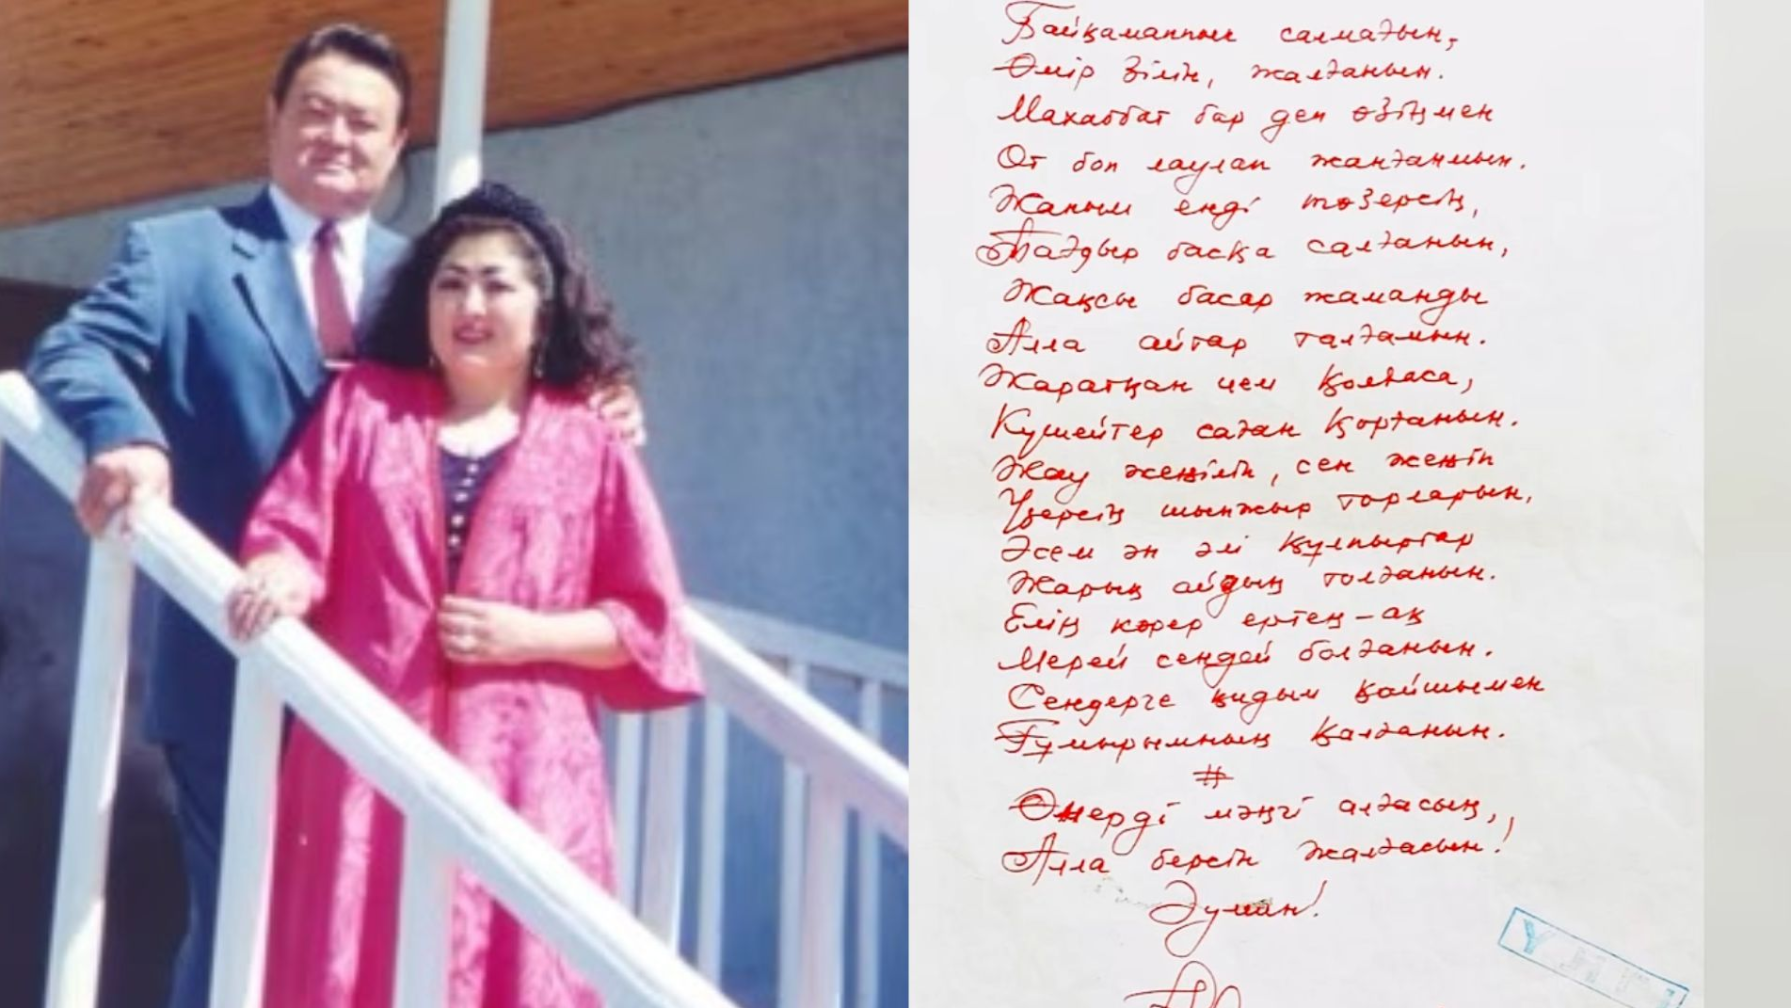 Байқамаппын салмағын,
Өмір зілін, жалғанын.
Махаббат бар деп өзіңмен
От боп лаулап жанғанмын.
Жаным енді төзерсің,
Тағдыр басқа салғанын,
Жақсы басар жаманды
Алла айтар талғамын.
Жаратқан ием қолдаса,
Күшейтер саған қорғанын.
Жау жеңіліп, сен жеңіп
Үзерсің шынжыр торларын,
Әсем ән әлі құлпыртар
Жарық айдың толғанын.
Елің көрер ертең-ақ
Мерей сендей болғанын.
Сендерге қидым қайшымен
Ғұмырымның қалғанын.
#
Өнерді мәңгі алғасың,
Алла берсін жалғасын!
Әумин!